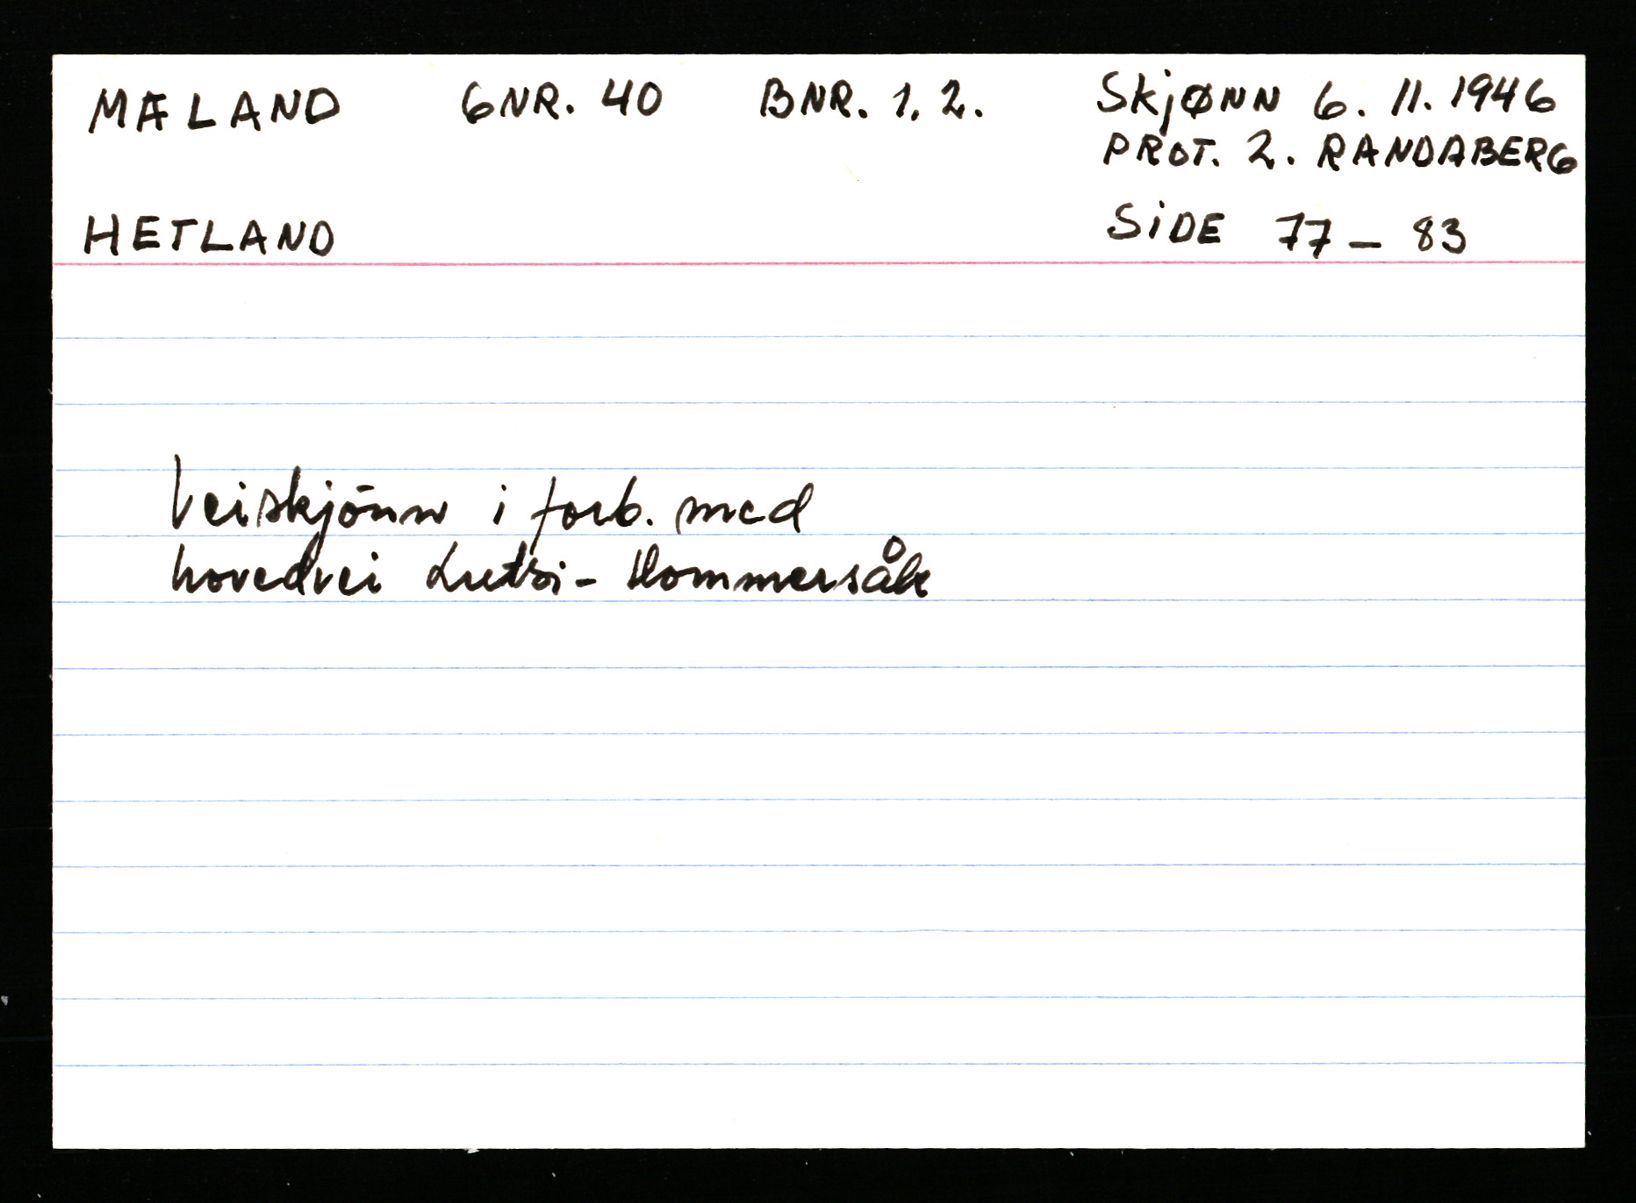 MÆLAND GNR. 40 BNR. 1, 2. Skjønn 6. 11. 1946
PROT. 2. RANDABERG
HETLAND SIDE 77 – 83
Veiskjönn i forb. med
hovedvei Lutsi - Hommersåk